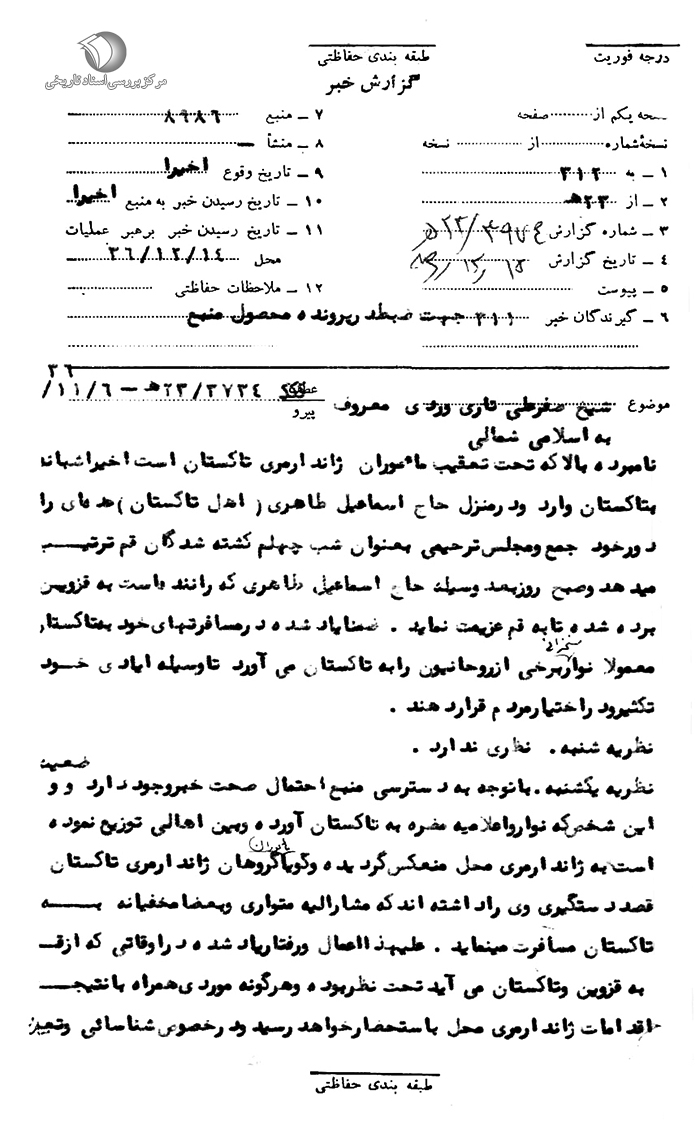 مرکز بررسی اسناد تاریخی
درجه فوریت
طبقه بندی حفاظتی
گزارش خبر
نسخه یکم از صفحه
نسخه شماره از نسخه
۱ ـ به ۳۱۲
۲ ـ از ۲۳هـ
۳ ـ شماره گزارش
۴ ـ تاریخ گزارش
۵ ـ پیوست
۶ ـ گیرندگان خبر ۳۱۱ جهت ضبط در پرونده محصول منبع
۷ ـ منبع ۸۹۸۶
۸ ـ منشأ ـ
۹ ـ تاریخ وقوع اخیرا
۱۰ ـ تاریخ رسیدن خبر به منبع اخیرا
۱۱ ـ تاریخ رسیدن خبر برهبر عملیات
محل ۳۶/۱۲/۱۴
۱۲ ـ ملاحظات حفاظتی
موضوع شیخ صفرطی تاری وردی معروف
به اسلامی شمالی
عطف
پیرو
۲۳/۳۷۳۴هـ – ۳۶/۱۱/۶
نامبرده بالا که تحت تعقیب مأموران ژاندارمری تاکستان است اخیرا شبانه
بتاکستان وارد و در منزل حاج اسماعیل طاهری (اهل تاکستان) عده‌ای را
دور خود جمع و مجلس ترحیمی بعنوان شب چهلم کشته شدگان قم ترتیب
میدهد و صبح روز بعد وسیله حاج اسماعیل طاهری که راننده است به قزوین
برده شده تا به قم عزیمت نماید . ضمنا یاد شده در مسافرتهای خود بتاکستان
معمولا نوار سخنرانی برخی از روحانیون را به تاکستان می آورد تا وسیله ایادی خود
تکثیر و در اختیار مردم قرار دهند .
نظریه شنبه . نظری ندارد .
نظریه یکشنبه . با توجه به دسترسی منبع احتمال صحت خبر وجود دارد و وضعیت
این شخص که نوار و اعلامیه مضره به تاکستان آورده و بین اهالی توزیع نموده
است به ژاندارمری محل منعکس گردیده و گویا مأموران گروهان ژاندارمری تاکستان
قصد دستگیری وی را داشته اند که مشارالیه متواری و بعضا مخفیانه به
تاکستان مسافرت مینماید . علیهذا اعمال و رفتار یاد شده در اوقاتی که از قم
به قزوین و تاکستان می آید تحت نظر بوده و هرگونه موردی همراه با نتیجه
اقدامات ژاندارمری محل باستحضار خواهد رسید و در خصوص شناسائی و تعیین
طبقه بندی حفاظتی